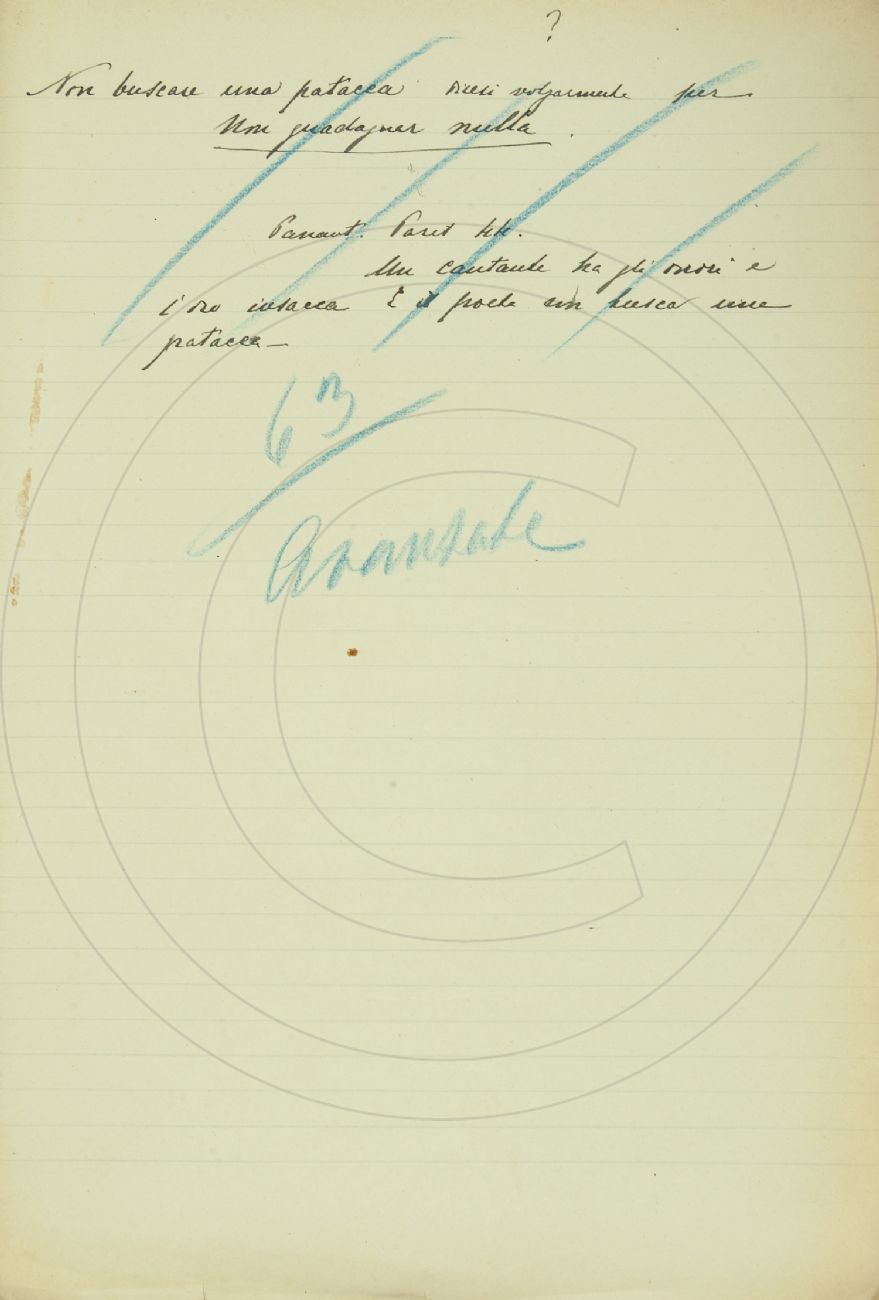 ?
Non buscare una patacca dicesi volgarmente per
Non guadagnar nulla.
Panant. Poet
Un cantante ha gli onori e
l'oro insacca E il poeta non busca una
patacca
63
Avanzate